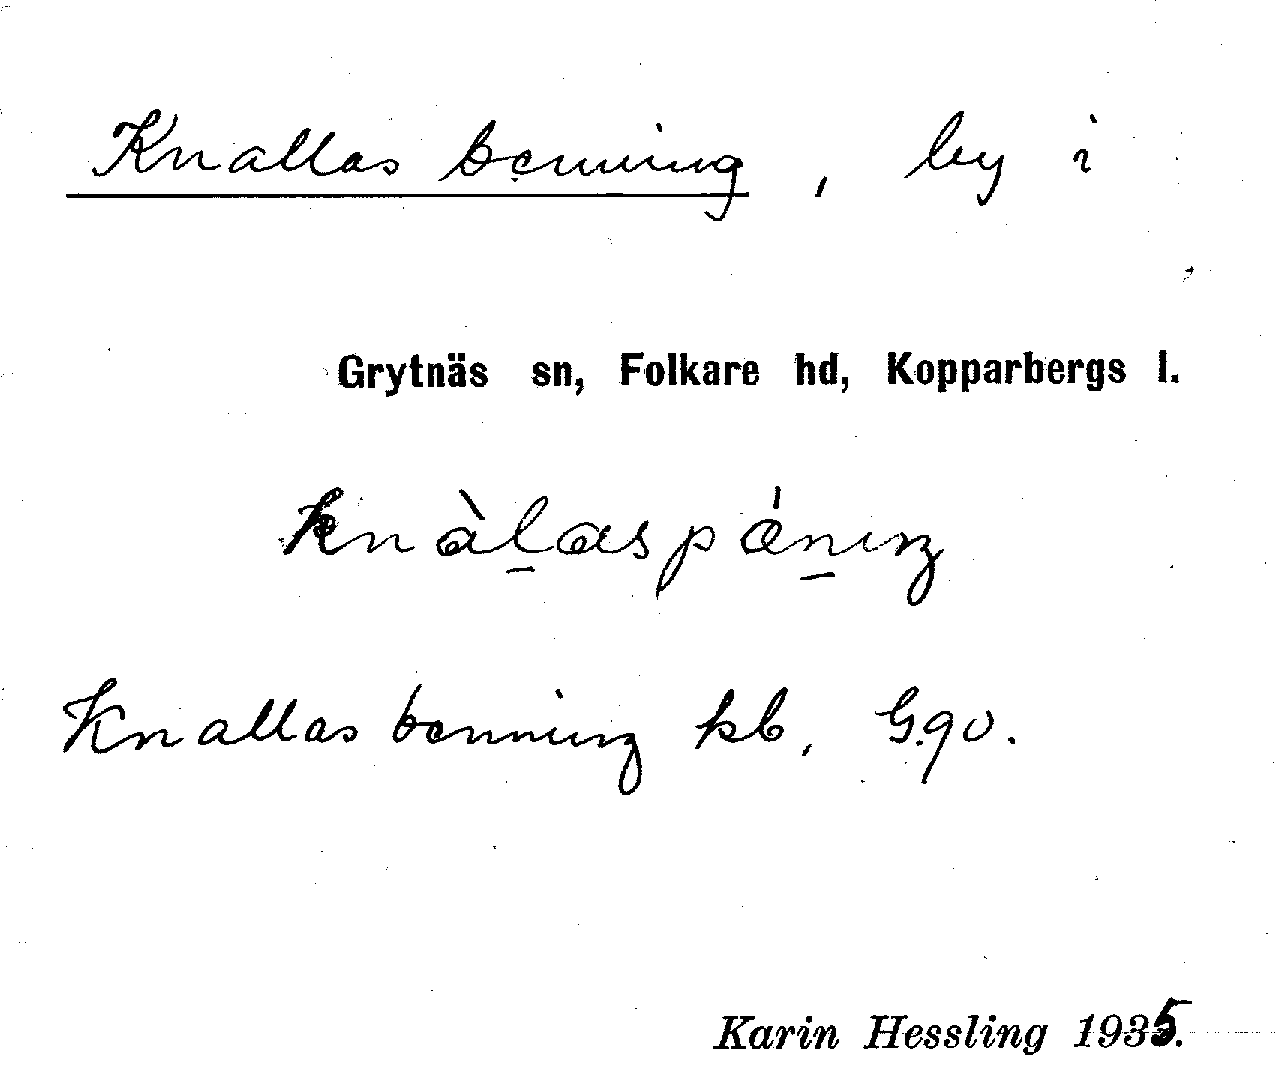 Knallasbenning, by i
Grytnäs sn, Folkare hd, Kopparbergs l.
knàl̠aspán̠iŋ
Knallasbenning kb,
Karin Hessling 1935.